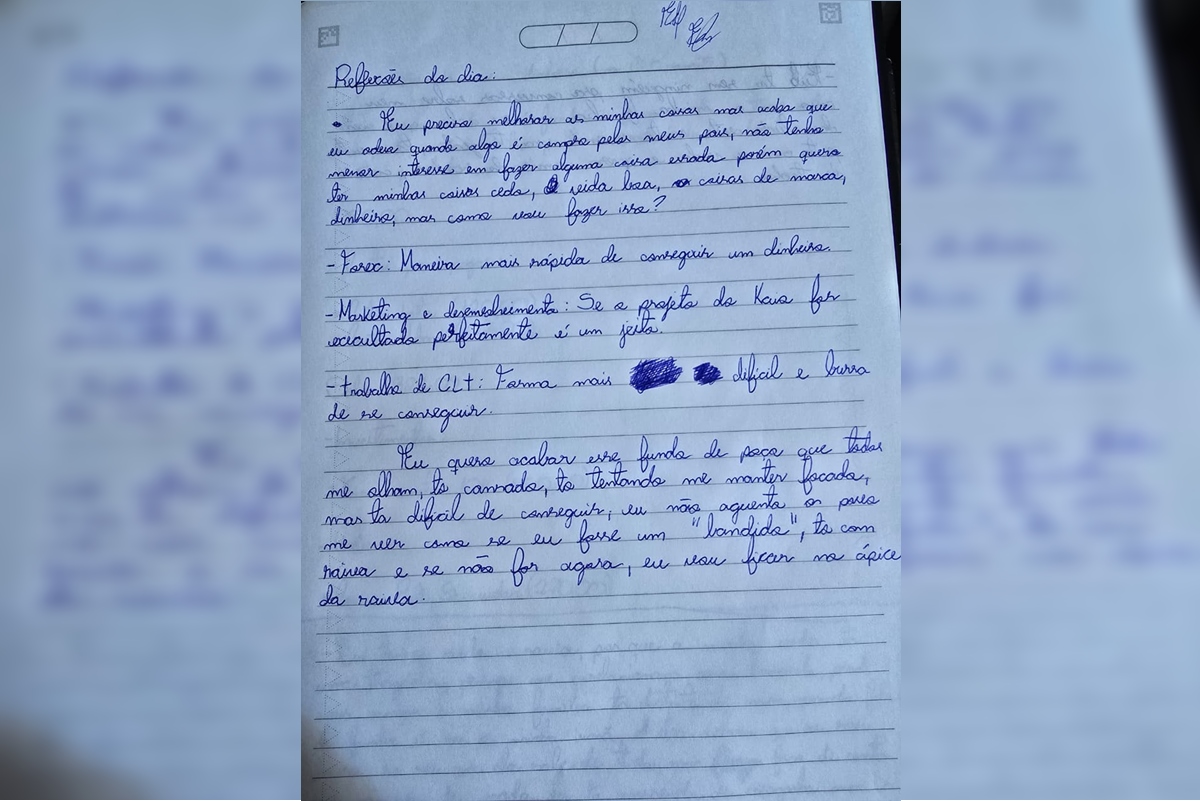 Reflexões do dia:
• Eu preciso melhorar as minhas coisas mas acaba que
eu odeio quando algo é compro pelos meus pais, não tenho
menor interesse em fazer alguma coisa errada porém quero
ter minhas coisas cedo, vida boa, coisas de marca,
dinheiro, mas como vou fazer isso?
- Forex: Maneira mais rápida de conseguir um dinheiro.
- Marketing e desenvolvimento: Se o projeto do Kaio for
executado perfeitamente é um jeito.
- trabalho de CLT: Forma mais dificil e burra
de se conseguir.
Eu quero acabar esse fundo de poço que todos
me olham, to cansado, to tentando me manter focado,
mas ta dificil de conseguir, eu não aguento o povo
me ver como se eu fosse um "bandido", to com
raiva e se não for agora, eu vou ficar no ápice
da raiva.